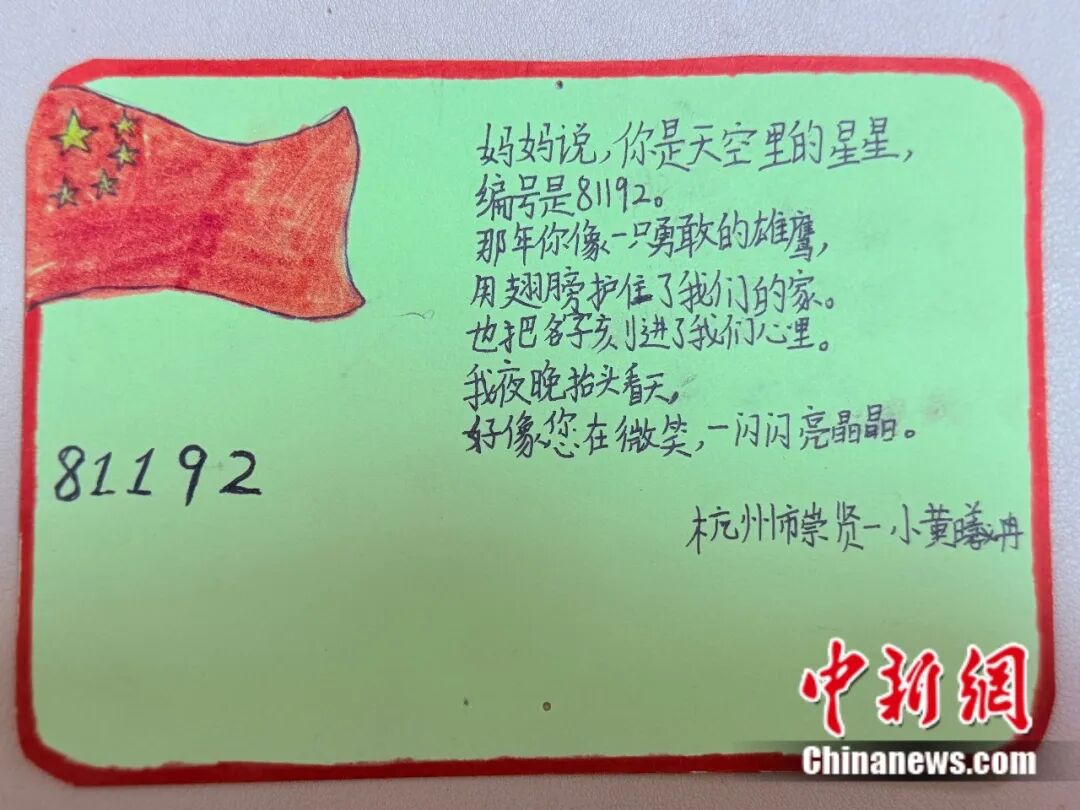 妈妈说，你是天空里的星星，
编号是81192。
那年你像一只勇敢的雄鹰，
用翅膀护住了我们的家。
也把名字刻进了我们心里。
我夜晚抬头看天，
好像您在微笑，一闪闪亮晶晶。
81192
杭州市崇贤一小黄曦冉
中新网
Chinanews.com